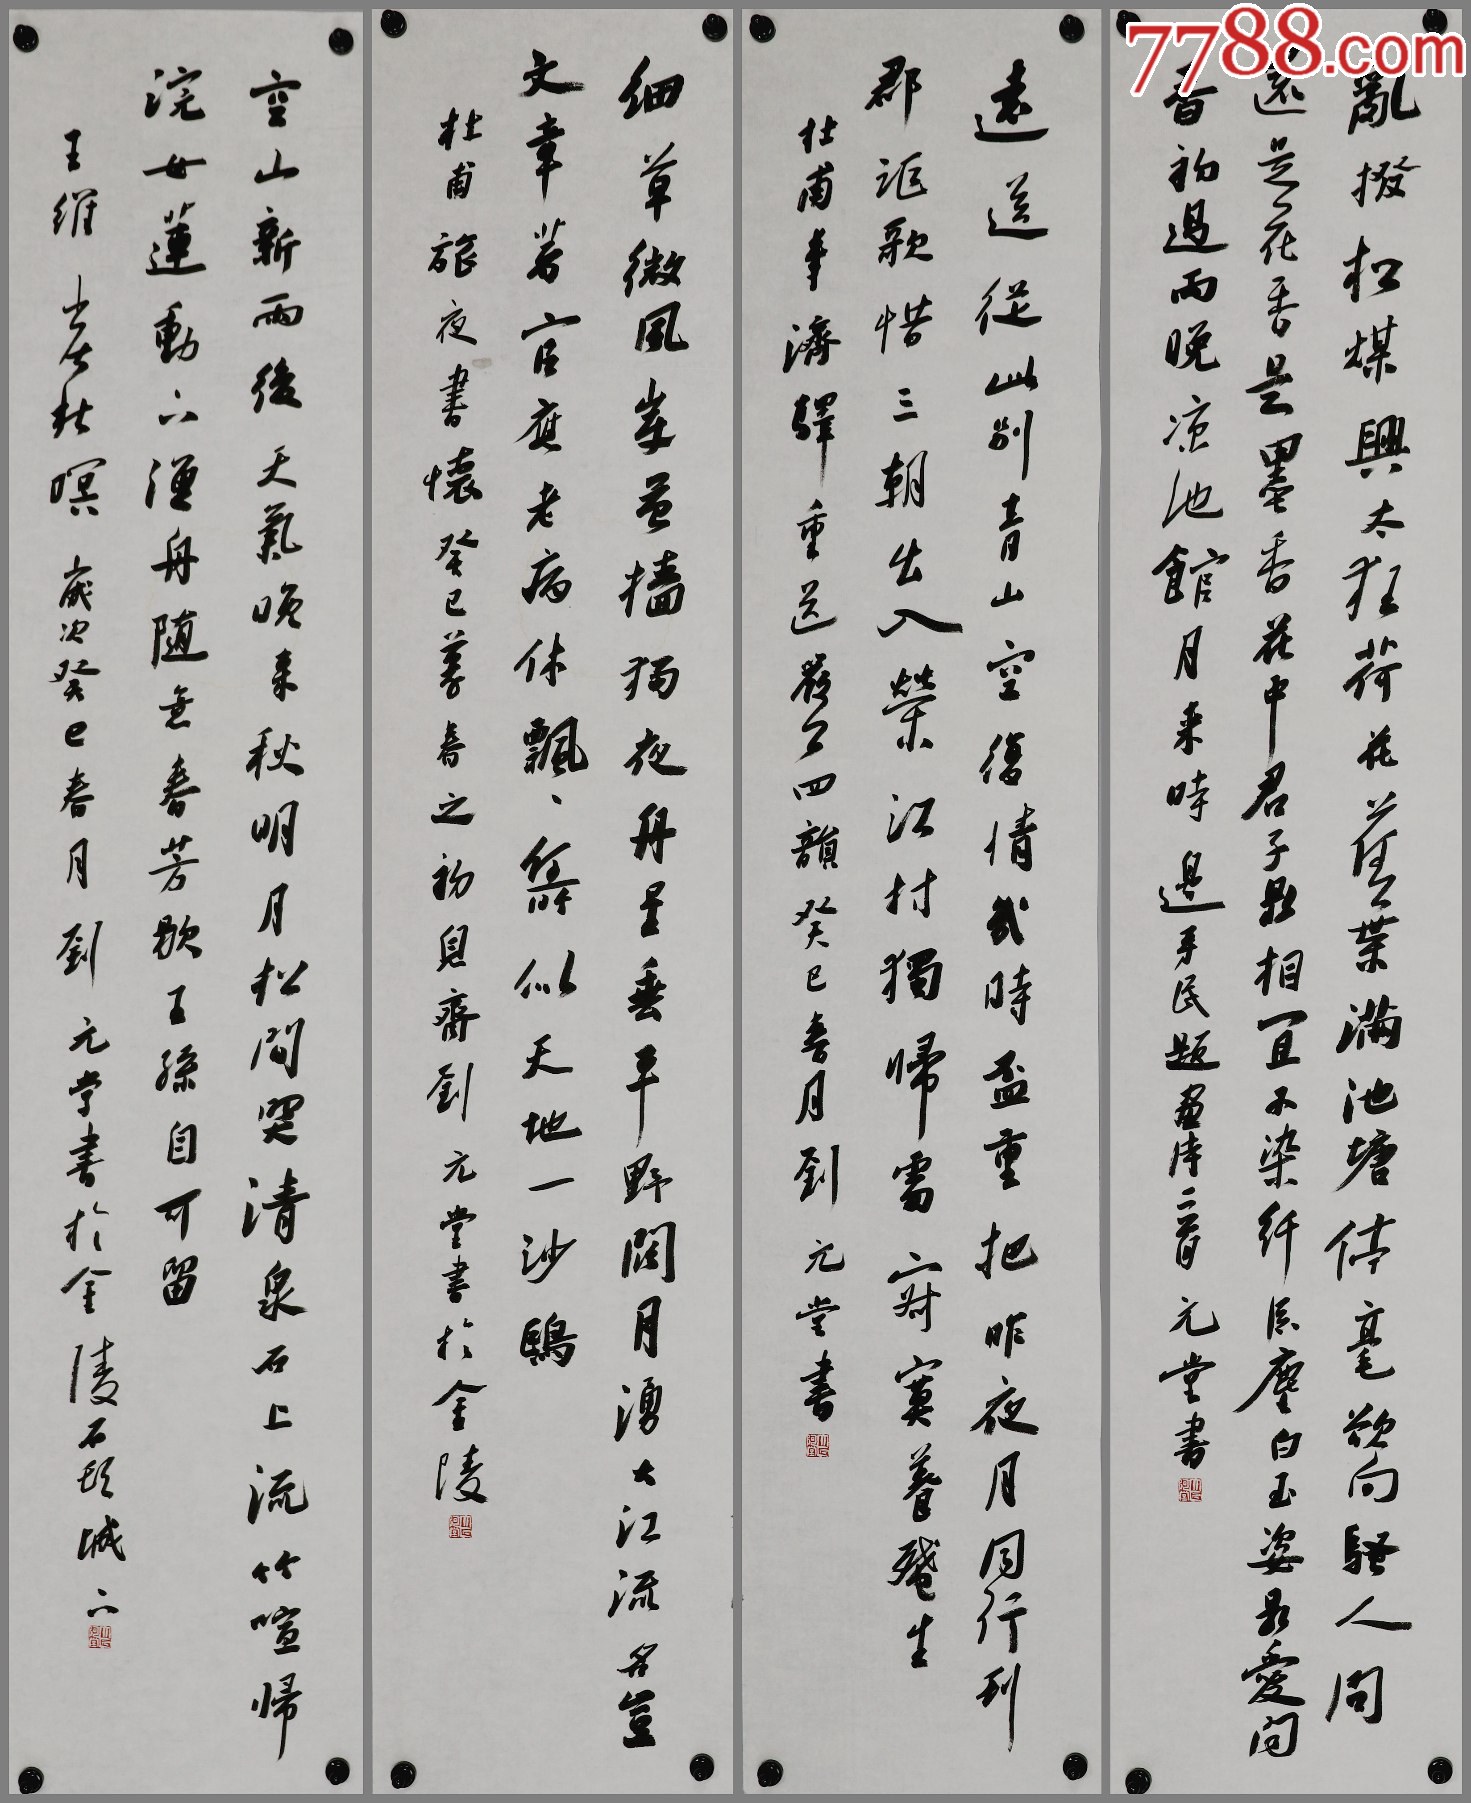 7788.com
亂撥松煤興太狂荷花蕉葉滿池塘停毫欲向騷人問
還是花香是墨香花中君子最相宜不染纤尘塵白玉姿最愛向
昏初過雨晚凉池館月来時 邊寿民題畫诗二首 元堂書
遠送從此別青山空復情幾時盃重把昨夜月同行列
郡謳歌惜三朝出入榮江村獨歸處寂寞養殘生
杜甫奉濟驛重送嚴公四韻癸巳春月劉元堂書
细草微風岸危檣獨夜舟星垂平野闊月湧大江流名豈
文章著官應老病休飄飄何所似天地一沙鷗
杜甫旅夜書懷癸巳暮春之初息齋劉元堂書於金陵
空山新雨後天氣晚来秋明月松間照清泉石上流竹喧歸
浣女蓮動下漁舟隨意春芳歇王孫自可留
王維山居秋暝歲次癸巳春月劉元堂書於金陵石頭城下